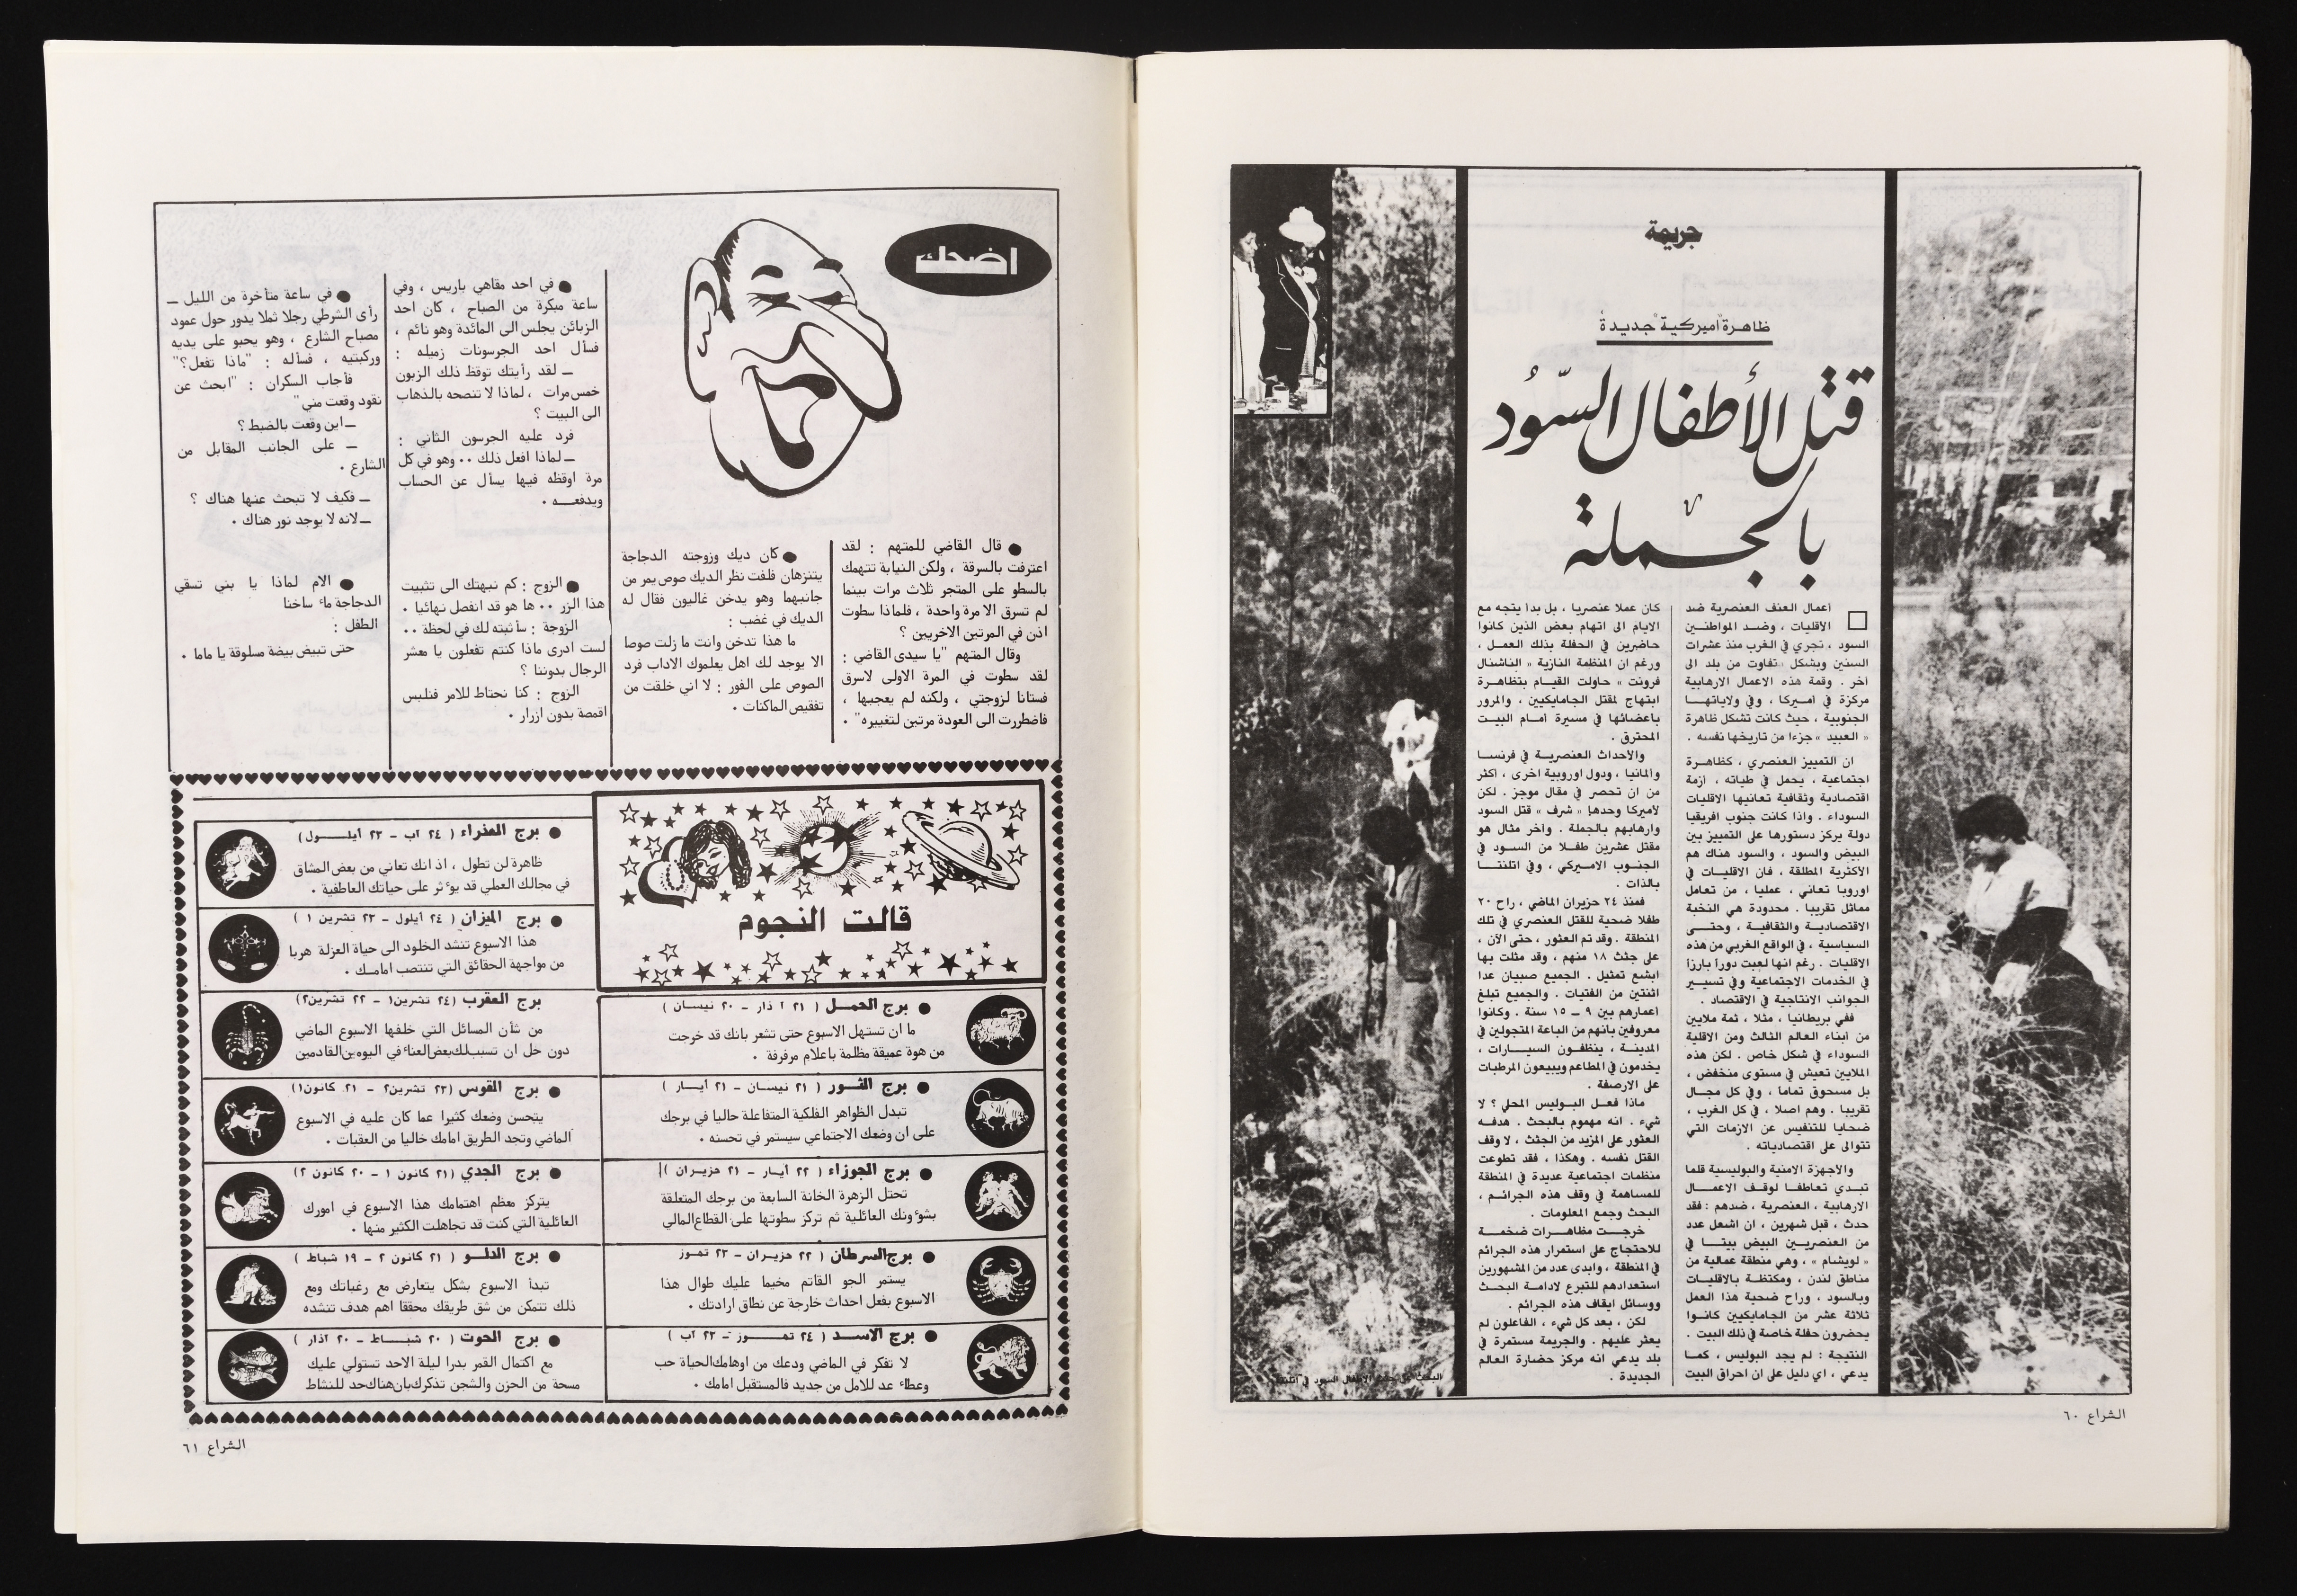 جريمة
ظاهرة اميركية جديدة
قتل الأطفال السّود
بالجملة
أعمال العنف العنصرية ضد
الأقليات ، وضد المواطنين
السود ، تجري في الغرب منذ عشرات
السنين وبشكل متفاوت من بلد الى
آخر . وقمة هذه الاعمال الارهابية
مركزة في اميركا ، وفي ولاياتها
الجنوبية ، حيث كانت تشكل ظاهرة
« العبيد » جزءا من تاريخها نفسه .
ان التمييز العنصري ، كظاهرة
اجتماعية ، يحمل في طياته ، أزمة
اقتصادية وثقافية تعانيها الاقليات
السوداء . واذا كانت جنوب افريقيا
دولة يركز دستورها على التمييز بين
البيض والسود ، والسود هناك هم
الأكثرية المطلقة ، فان الاقليات في
اوروبا تعاني ، عمليا ، من تعامل
مماثل تقريبا . محدودة هي النخبة
الاقتصادية والثقافية ، وحتى
السياسية ، في الواقع الغربي من هذه
الاقليات . رغم انها لعبت دوراً بارزاً
في الخدمات الاجتماعية وفي تسيير
الجوانب الانتاجية في الاقتصاد .
ففي بريطانيا ، مثلا ، ثمة ملايين
من أبناء العالم الثالث ومن الاقلية
السوداء في شكل خاص . لكن هذه
الملايين تعيش في مستوى منخفض ،
بل مسحوق تماما ، وفي كل مجال
تقريبا . وهم اصلا ، في كل الغرب ،
ضحايا للتنفيس عن الازمات التي
تتوالى على اقتصادياته .
والاجهزة الامنية والبوليسية قلما
تبدي تعاطفا لوقف الاعمال
الارهابية ، العنصرية ، ضدهم : فقد
حدث ، قبل شهرين ، ان اشعل عدد
من العنصريين البيض بيتا في
« لويشام » ، وهي منطقة عمالية من
مناطق لندن ، ومكتظة بالاقليات
وبالسود ، وراح ضحية هذا العمل
ثلاثة عشر من الجامايكيين كانوا
يحضرون حفلة خاصة في ذلك البيت .
النتيجة : لم يجد البوليس ، كما
يدعي ، اي دليل على ان احراق البيت
كان عملا عنصريا ، بل بدأ يتجه مع
الايام الى اتهام بعض الذين كانوا
حاضرين في الحفلة بذلك العمل ،
ورغم ان المنظمة النازية « الناشنال
فرونت » حاولت القيام بتظاهرة
ابتهاج لمقتل الجامايكيين ، والمرور
باعضائها في مسيرة امام البيت
المحترق .
والأحداث العنصرية في فرنسا
وألمانيا ، ودول اوروبية اخرى ، اكثر
من ان تحصر في مقال موجز . لكن
لأميركا وحدها « شرف » قتل السود
وارهابهم بالجملة . وآخر مثال هو
مقتل عشرين طفلا من السود في
الجنوب الاميركي ، وفي اتلنتا
بالذات .
فمنذ ٢٤ حزيران الماضي ، راح ٢٠
طفلا ضحية للقتل العنصري في تلك
المنطقة . وقد تم العثور ، حتى الآن ،
على جثث ١٨ منهم ، وقد مثلت بها
ابشع تمثيل . الجميع صبيان عدا
اثنتين من الفتيات . والجميع تبلغ
اعمارهم بين ٩ – ١٥ سنة . وكانوا
معروفين بانهم من الباعة المتجولين في
المدينة ، ينظفون السيارات ،
يخدمون في المطاعم ويبيعون المرطبات
على الارصفة .
ماذا فعل البوليس المحلي ؟ لا
شيء . انه مهموم بالبحث . هدفه
العثور على المزيد من الجثث ، لا وقف
القتل نفسه . وهكذا ، فقد تطوعت
منظمات اجتماعية عديدة في المنطقة
للمساهمة في وقف هذه الجرائم ،
البحث وجمع المعلومات .
خرجت مظاهرات ضخمة
للاحتجاج على استمرار هذه الجرائم
في المنطقة ، وابدى عدد من المشهورين
استعدادهم للتبرع لادامة البحث
ووسائل ايقاف هذه الجرائم .
لكن ، بعد كل شيء ، الفاعلون لم
يعثر عليهم . والجريمة مستمرة في
بلد يدعي انه مركز حضارة العالم
الجديدة .
البحث عن جثث الاطفال السود في اتلنتا
الشراع ٦٠
اضحك
● قال القاضي للمتهم : لقد
اعترفت بالسرقة ، ولكن النيابة تتهمك
بالسطو على المتجر ثلاث مرات بينما
لم تسرق الا مرة واحدة ، فلماذا سطوت
اذن في المرتين الاخريين ؟
وقال المتهم "يا سيدى القاضي :
لقد سطوت في المرة الاولى لاسرق
فستانا لزوجتي ، ولكنه لم يعجبها ،
فاضطررت الى العودة مرتين لتغييره" .
● كان ديك وزوجته الدجاجة
يتنزهان فلفت نظر الديك صوص يمر من
جانبهما وهو يدخن غاليون فقال له
الديك في غضب :
ما هذا تدخن وانت ما زلت صوصا
الا يوجد لك اهل يعلموك الاداب فرد
الصوص على الفور : لا اني خلقت من
تفقيص الماكنات .
● في احد مقاهي باريس ، وفي
ساعة مبكرة من الصباح ، كان احد
الزبائن يجلس الى المائدة وهو نائم ،
فسأل احد الجرسونات زميله :
ــ لقد رأيتك توقظ ذلك الزبون
خمس مرات ، لماذا لا تنصحه بالذهاب
الى البيت ؟
فرد عليه الجرسون الثاني :
ــ لماذا افعل ذلك .. وهو في كل
مرة اوقظه فيها يسأل عن الحساب
ويدفعه .
● الزوج : كم نبهتك الى تثبيت
هذا الزر .. ها هو قد انفصل نهائيا .
الزوجة : سأثبته لك في لحظة ..
لست ادرى ماذا كنتم تفعلون يا معشر
الرجال بدوننا ؟
الزوج : كنا نحتاط للامر فنلبس
اقمصة بدون ازرار .
● في ساعة متأخرة من الليل ــ
رأى الشرطي رجلا ثملا يدور حول عمود
مصباح الشارع ، وهو يحبو على يديه
وركبتيه ، فسأله : "ماذا تفعل؟"
فأجاب السكران : "ابحث عن
نقود وقعت مني"
ــ اين وقعت بالضبط ؟
ــ على الجانب المقابل من
الشارع .
ــ فكيف لا تبحث عنها هناك ؟
ــ لانه لا يوجد نور هناك .
● الام لماذا يا بني تسقي
الدجاجة ماء ساخنا
الطفل :
حتى تبيض بيضة مسلوقة يا ماما .
قالت النجوم
● برج الحمل ( ٢١ اذار – ٢٠ نيسان )
ما ان تستهل الاسبوع حتى تشعر بانك قد خرجت
من هوة عميقة مظلمة باعلام مرفرفة .
● برج الثور ( ٢١ نيسان – ٢١ أيار )
تبدل الظواهر الفلكية المتفاعلة حاليا في برجك
على ان وضعك الاجتماعي سيستمر في تحسنه .
● برج الجوزاء ( ٢٢ أيار – ٢١ حزيران )
تحتل الزهرة الخانة السابعة من برجك المتعلقة
بشوءونك العائلية ثم تركز سطوتها على القطاع المالي
● برج السرطان ( ٢٢ حزيران – ٢٣ تموز
يستمر الجو القاتم مخيما عليك طوال هذا
الاسبوع بفعل احداث خارجة عن نطاق ارادتك .
● برج الاسد ( ٢٤ تموز – ٢٣ آب )
لا تفكر في الماضي ودعك من اوهامك الحياة حب
وعطاء عد للامل من جديد فالمستقبل امامك .
● برج العذراء ( ٢٤ اب – ٢٣ أيلول )
ظاهرة لن تطول ، اذ انك تعاني من بعض المشاق
في مجالك العملي قد يوءثر على حياتك العاطفية .
● برج الميزان ( ٢٤ أيلول – ٢٣ تشرين ١ )
هذا الاسبوع تنشد الخلود الى حياة العزلة هربا
من مواجهة الحقائق التي تنتصب امامك .
برج العقرب (٢٤ تشرين١ – ٢٢ تشرين٢)
من شأن المسائل التي خلفها الاسبوع الماضي
دون حل ان تسبب لك بعض العناء في اليومين القادمين
● برج القوس (٢٣ تشرين٢ – ٢١ كانون١)
يتحسن وضعك كثيرا عما كان عليه في الاسبوع
الماضي وتجد الطريق امامك خاليا من العقبات .
● برج الجدي (٢١ كانون ١ – ٢٠ كانون ٢)
يتركز معظم اهتمامك هذا الاسبوع في امورك
العائلية التي كنت قد تجاهلت الكثير منها .
● برج الدلو ( ٢١ كانون ٢ – ١٩ شباط )
تبدأ الاسبوع بشكل يتعارض مع رغباتك ومع
ذلك تتمكن من شق طريقك محققا اهم هدف تنشده
● برج الحوت ( ٢٠ شباط – ٢٠ آذار )
مع اكتمال القمر بدرا ليلة الاحد تستولي عليك
مسحة من الحزن والشجن تذكرك بان هناك حد للنشاط
الشراع ٦١